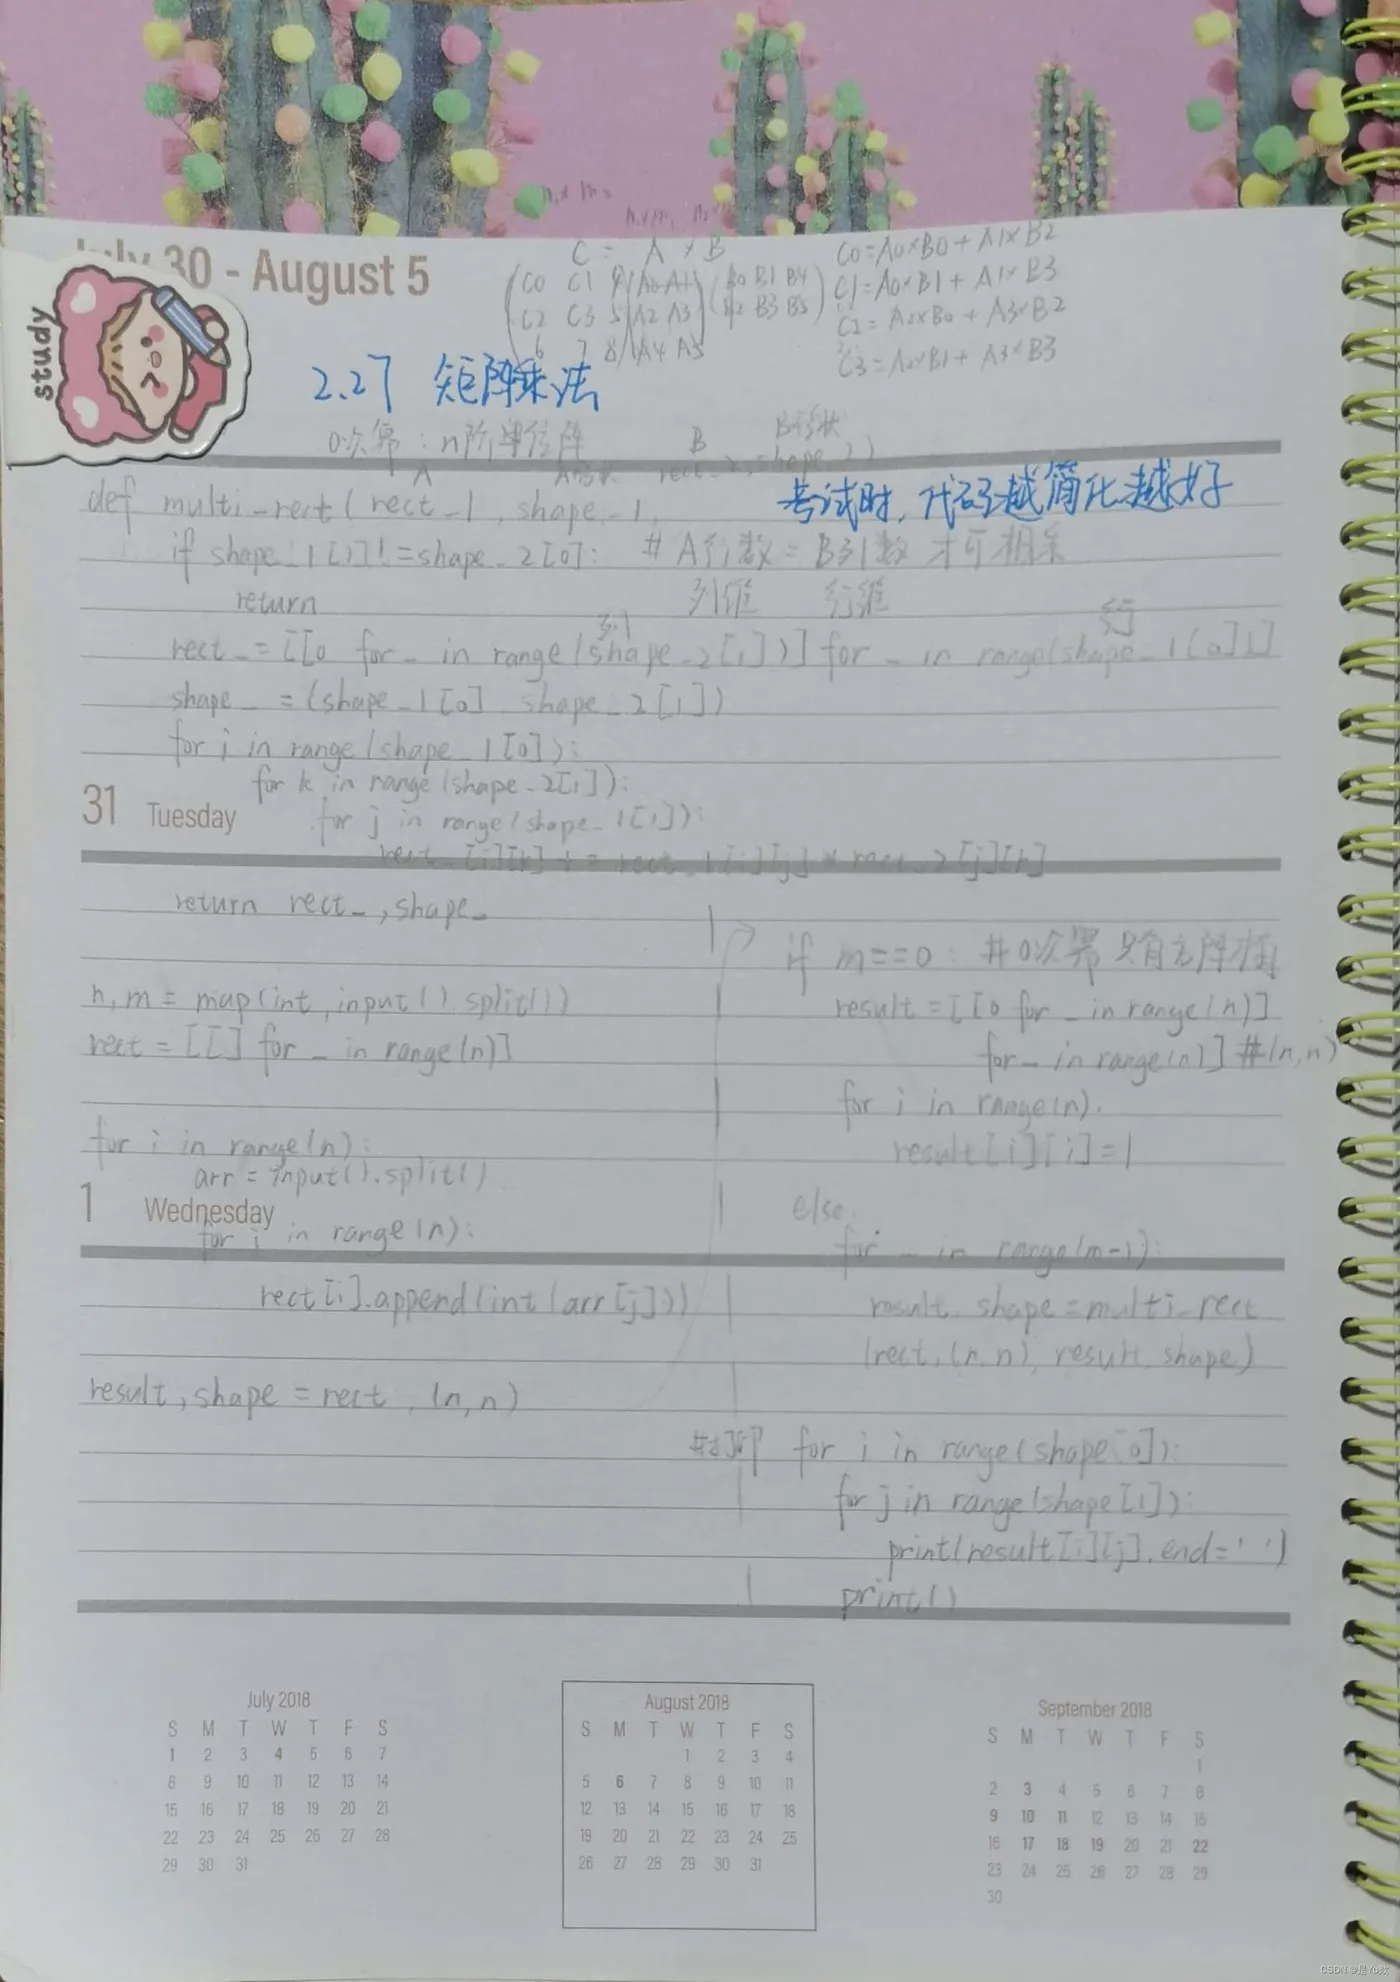 July 30 - August 5
study
C = A × B
C0 C1 4 A0 A1 B0 B1 B4
C2 C3 5 A2 A3 B2 B3 B5
6 7 8 A4 A5
C0=A0×B0+A1×B2
C1=A0×B1+A1×B3
C2=A2×B0+A3×B2
C3=A2×B1+A3×B3
2.27 矩阵乘法
0次幂：n阶单位阵
A
B
B形状
rect_2, shape_2)
考试时，代码越简化越好
def multi_rect(rect_1, shape_1,
if shape_1[1]!=shape_2[0]: # A行数=B列数 才可相乘
列维 行维
return
列 行
rect_=[[0 for _ in range(shape_2[1])] for _ in range(shape_1[0])]
shape_=(shape_1[0], shape_2[1])
for i in range(shape_1[0]):
for k in range(shape_2[1]):
31 Tuesday
for j in range(shape_1[1]):
rect_[i][k] += rect_1[i][j]*rect_2[j][k]
return rect_,shape_
n,m = map(int, input().split())
rect = [[] for _ in range(n)]
for i in range(n):
arr = input().split()
1 Wednesday
for j in range(n):
rect[i].append(int(arr[j]))
result,shape = rect, (n,n)
if m==0: #0次幂 只有方阵才有
result=[[0 for _ in range(n)]
for _ in range(n)] #(n,n)
for i in range(n):
result[i][i]=1
else:
for _ in range(m-1):
result, shape=multi_rect
(rect,(n,n), result, shape)
#打印 for i in range(shape[0]):
for j in range(shape[1]):
print(result[i][j],end=' ')
print()
July 2018
S M T W T F S
1 2 3 4 5 6 7
8 9 10 11 12 13 14
15 16 17 18 19 20 21
22 23 24 25 26 27 28
29 30 31
August 2018
S M T W T F S
1 2 3 4
5 6 7 8 9 10 11
12 13 14 15 16 17 18
19 20 21 22 23 24 25
26 27 28 29 30 31
September 2018
S M T W T F S
1
2 3 4 5 6 7 8
9 10 11 12 13 14 15
16 17 18 19 20 21 22
23 24 25 26 27 28 29
30